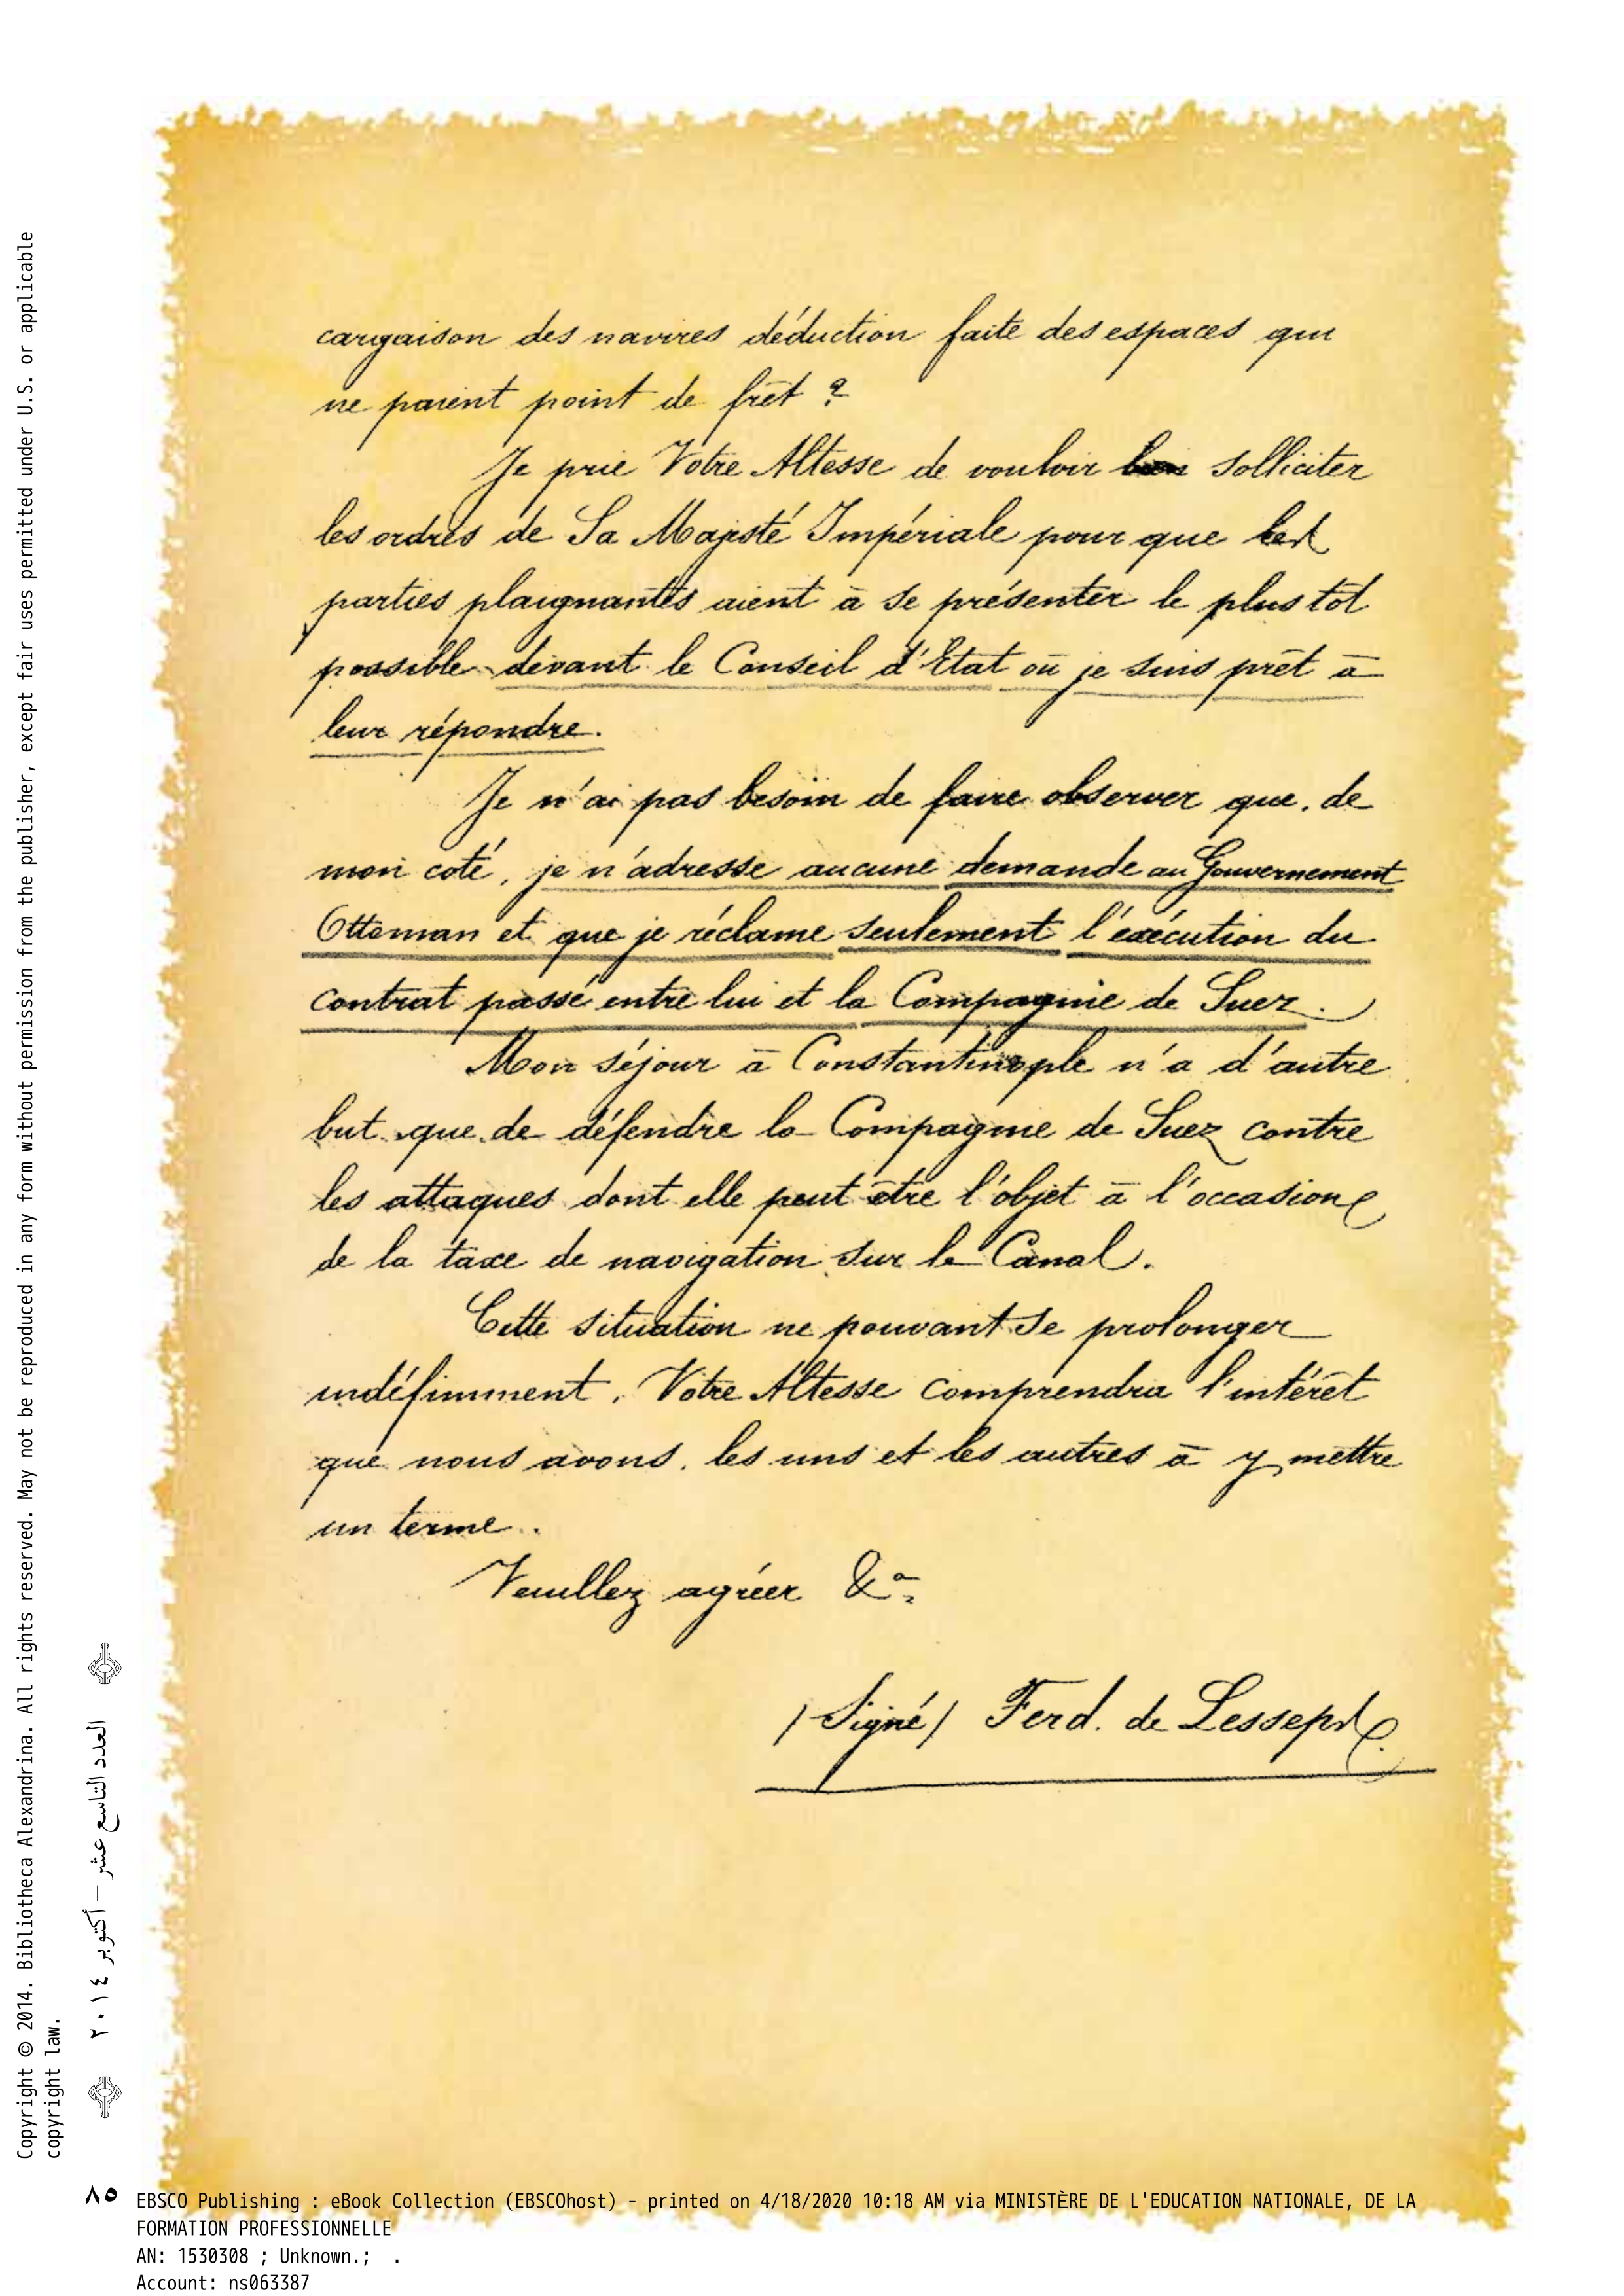 cargaison des navires déduction faite des espaces qui
ne paient point de frêt ?
Je prie Votre Altesse de vouloir solliciter
les ordres de Sa Majesté Impériale pour que les
parties plaignantes aient à se présenter le plus tôt
possible devant le Conseil d'Etat où je suis prêt à
leur répondre.
Je n'ai pas besoin de faire observer que, de
mon coté, je n'adresse aucune demande au Gouvernement
Ottoman et que je réclame seulement l'exécution du
contrat passé entre lui et la Compagnie de Suez.
Mon séjour à Constantinople n'a d'autre
but que de défendre la Compagnie de Suez contre
les attaques dont elle peut être l'objet à l'occasion
de la taxe de navigation sur le Canal.
Cette situation ne pouvant se prolonger
indéfiniment, Votre Altesse comprendra l'intérêt
que nous avons, les uns et les autres à y mettre
un terme.
Veuillez agréer &a
/Signé/ Ferd. de Lesseps
Copyright © 2014. Bibliotheca Alexandrina. All rights reserved. May not be reproduced in any form without permission from the publisher, except fair uses permitted under U.S. or applicable
copyright law.
العدد التاسع عشر – أكتوبر ٢٠١٤
٨٥
EBSCO Publishing : eBook Collection (EBSCOhost) - printed on 4/18/2020 10:18 AM via MINISTÈRE DE L'EDUCATION NATIONALE, DE LA
FORMATION PROFESSIONNELLE
AN: 1530308 ; Unknown.; .
Account: ns063387